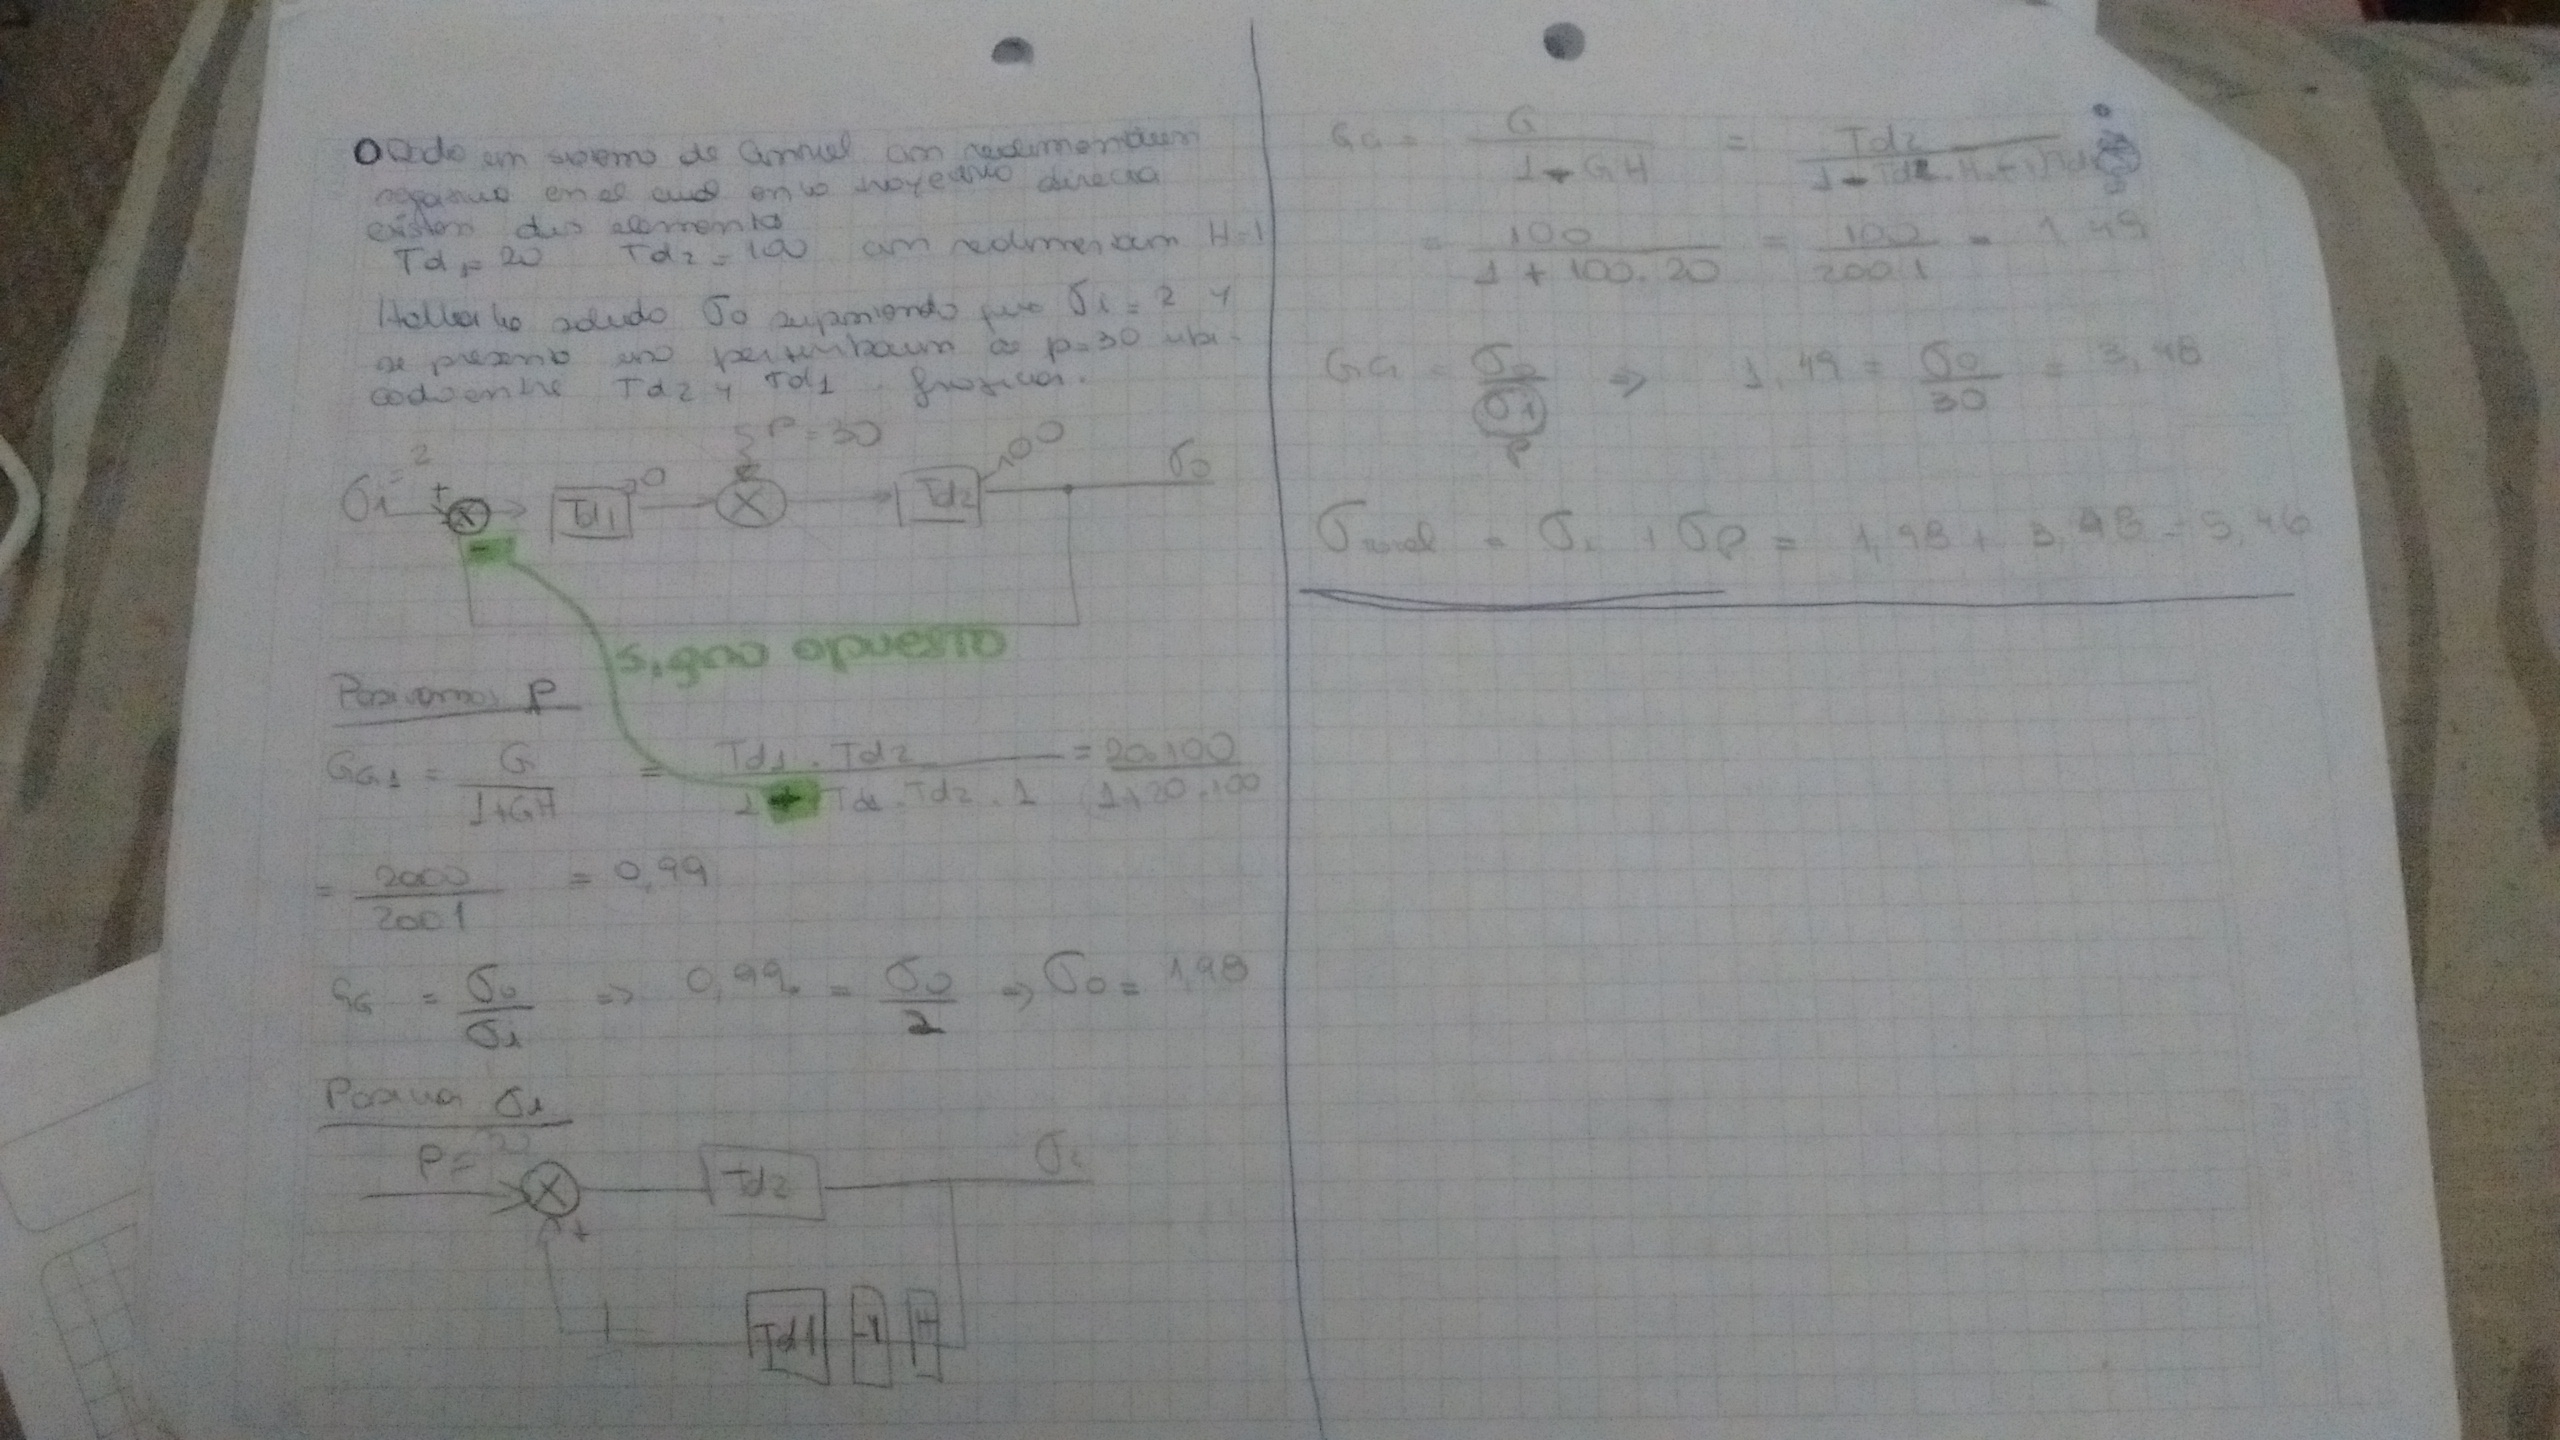 Dado un sistema de control con realimentacion
negativa en el cual en la trayectoria directa
existen dos elementos
Td1 = 20 Td2 = 100 con realimentacion H=1
Hallar la salida σo suponiendo que σi = 2 y
se presenta una perturbacion de p=30 ubi-
cada entre Td2 y Td1. Graficar.
σi = 2 + Td1 20 P = 30 Td2 100 σo
-
signo opuesto
Pasivamos P
GG1 = G / 1+GH = Td1 . Td2 / 1 + Td1 . Td2 . 1 = 20.100 / 1+20.100
= 2000 / 2001 = 0,99
GG = σo / σi => 0,99 = σo / 2 => σo = 1,98
Pasiva σi
P= Td2
+
Td1 -1 H
GG = G / 1 - GH = Td2 / 1 - Td2 . H .
= 100 / 1 + 100.20 = 100 / 2001 = 1,49
GG = σo / σi => 1,49 = σo / 30 = 3,48
P
σ = σi + σP = 1,98 + 3,48 = 5,46